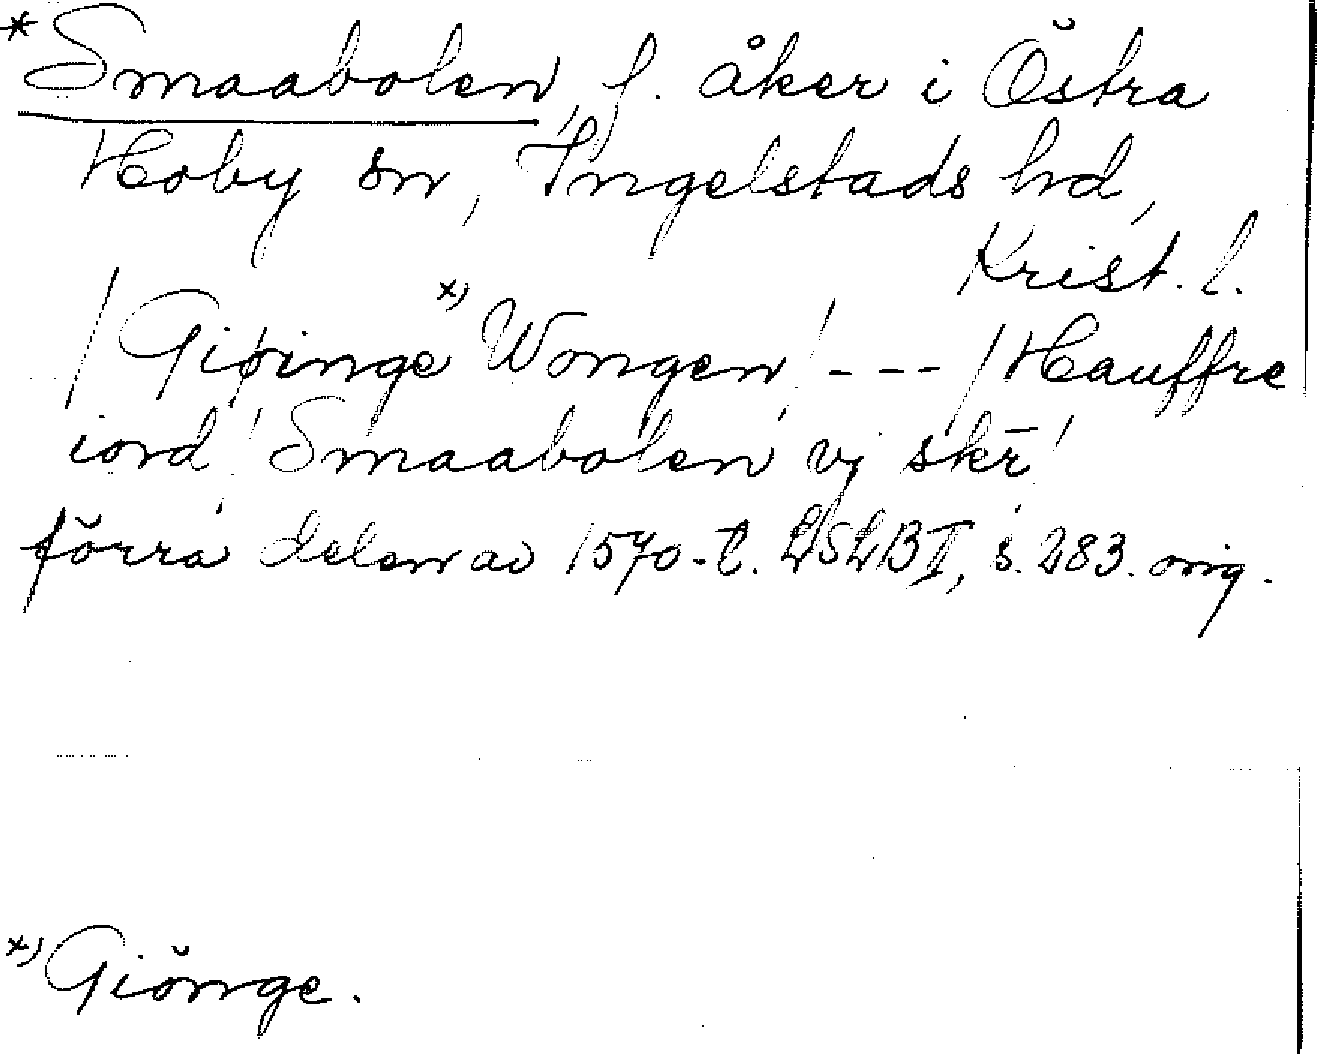 * Smaabolen, f. åker i Östra
Hoby sn, Ingelstads hd,
Krist. l.
/ Giøinge x) Wongen / --- / Hauffre
iord / Smaabolen vj skr̄ /
förra delen av 1570-t. LSLB II, s. 283. orig.
x) Giönge.